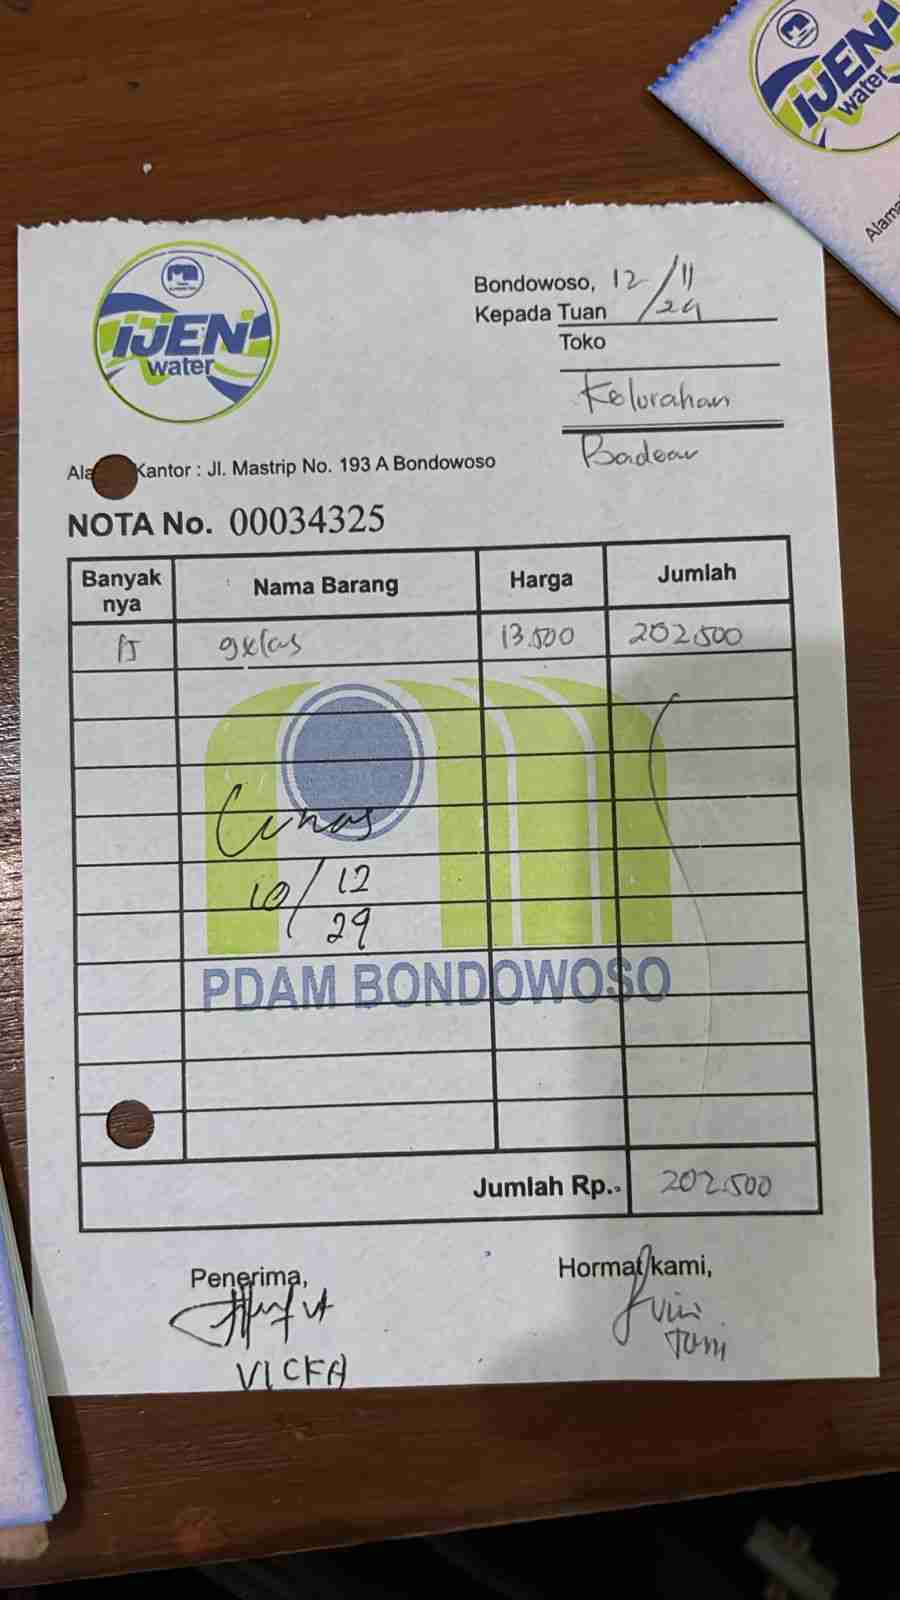 IJEN
water
Alama
IJEN
water
Bondowoso, 12/11/24
Kepada Tuan
Toko
Kelurahan
Badean
Ala Kantor : Jl. Mastrip No. 193 A Bondowoso
NOTA No. 00034325
Banyak nya Nama Barang Harga Jumlah
15 gelas 13.500 202.500
Lunas
10/12
24
PDAM BONDOWOSO
Jumlah Rp.- 202.500
Penerima, Hormat kami,
VICFA